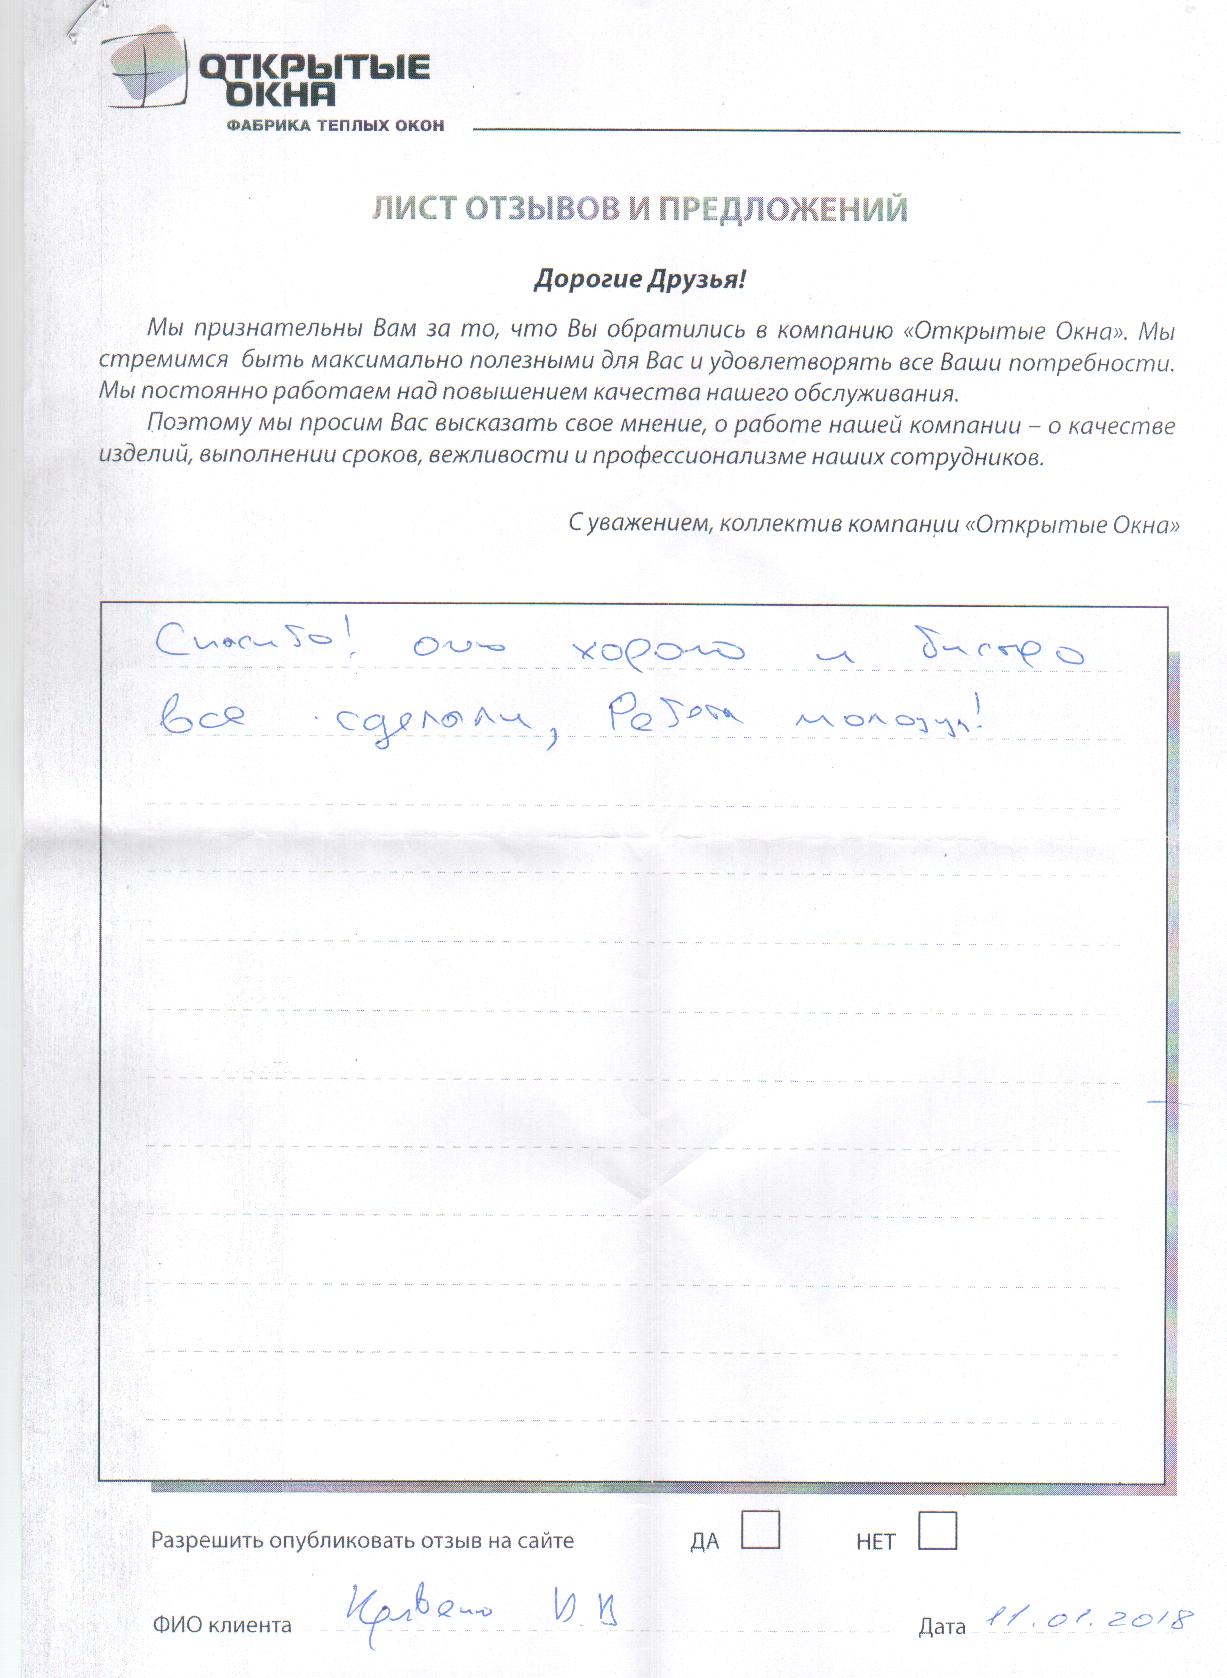 ОТКРЫТЫЕ
ОКНА
ФАБРИКА ТЕПЛЫХ ОКОН
ЛИСТ ОТЗЫВОВ И ПРЕДЛОЖЕНИЙ
Дорогие Друзья!
Мы признательны Вам за то, что Вы обратились в компанию «Открытые Окна». Мы
стремимся быть максимально полезными для Вас и удовлетворять все Ваши потребности.
Мы постоянно работаем над повышением качества нашего обслуживания.
Поэтому мы просим Вас высказать свое мнение, о работе нашей компании – о качестве
изделий, выполнении сроков, вежливости и профессионализме наших сотрудников.
С уважением, коллектив компании «Открытые Окна»
Спасибо! хорошо и быстро
все сделали, Ребята молодцы!
Разрешить опубликовать отзыв на сайте ДА НЕТ
ФИО клиента Дата 11.01.2018